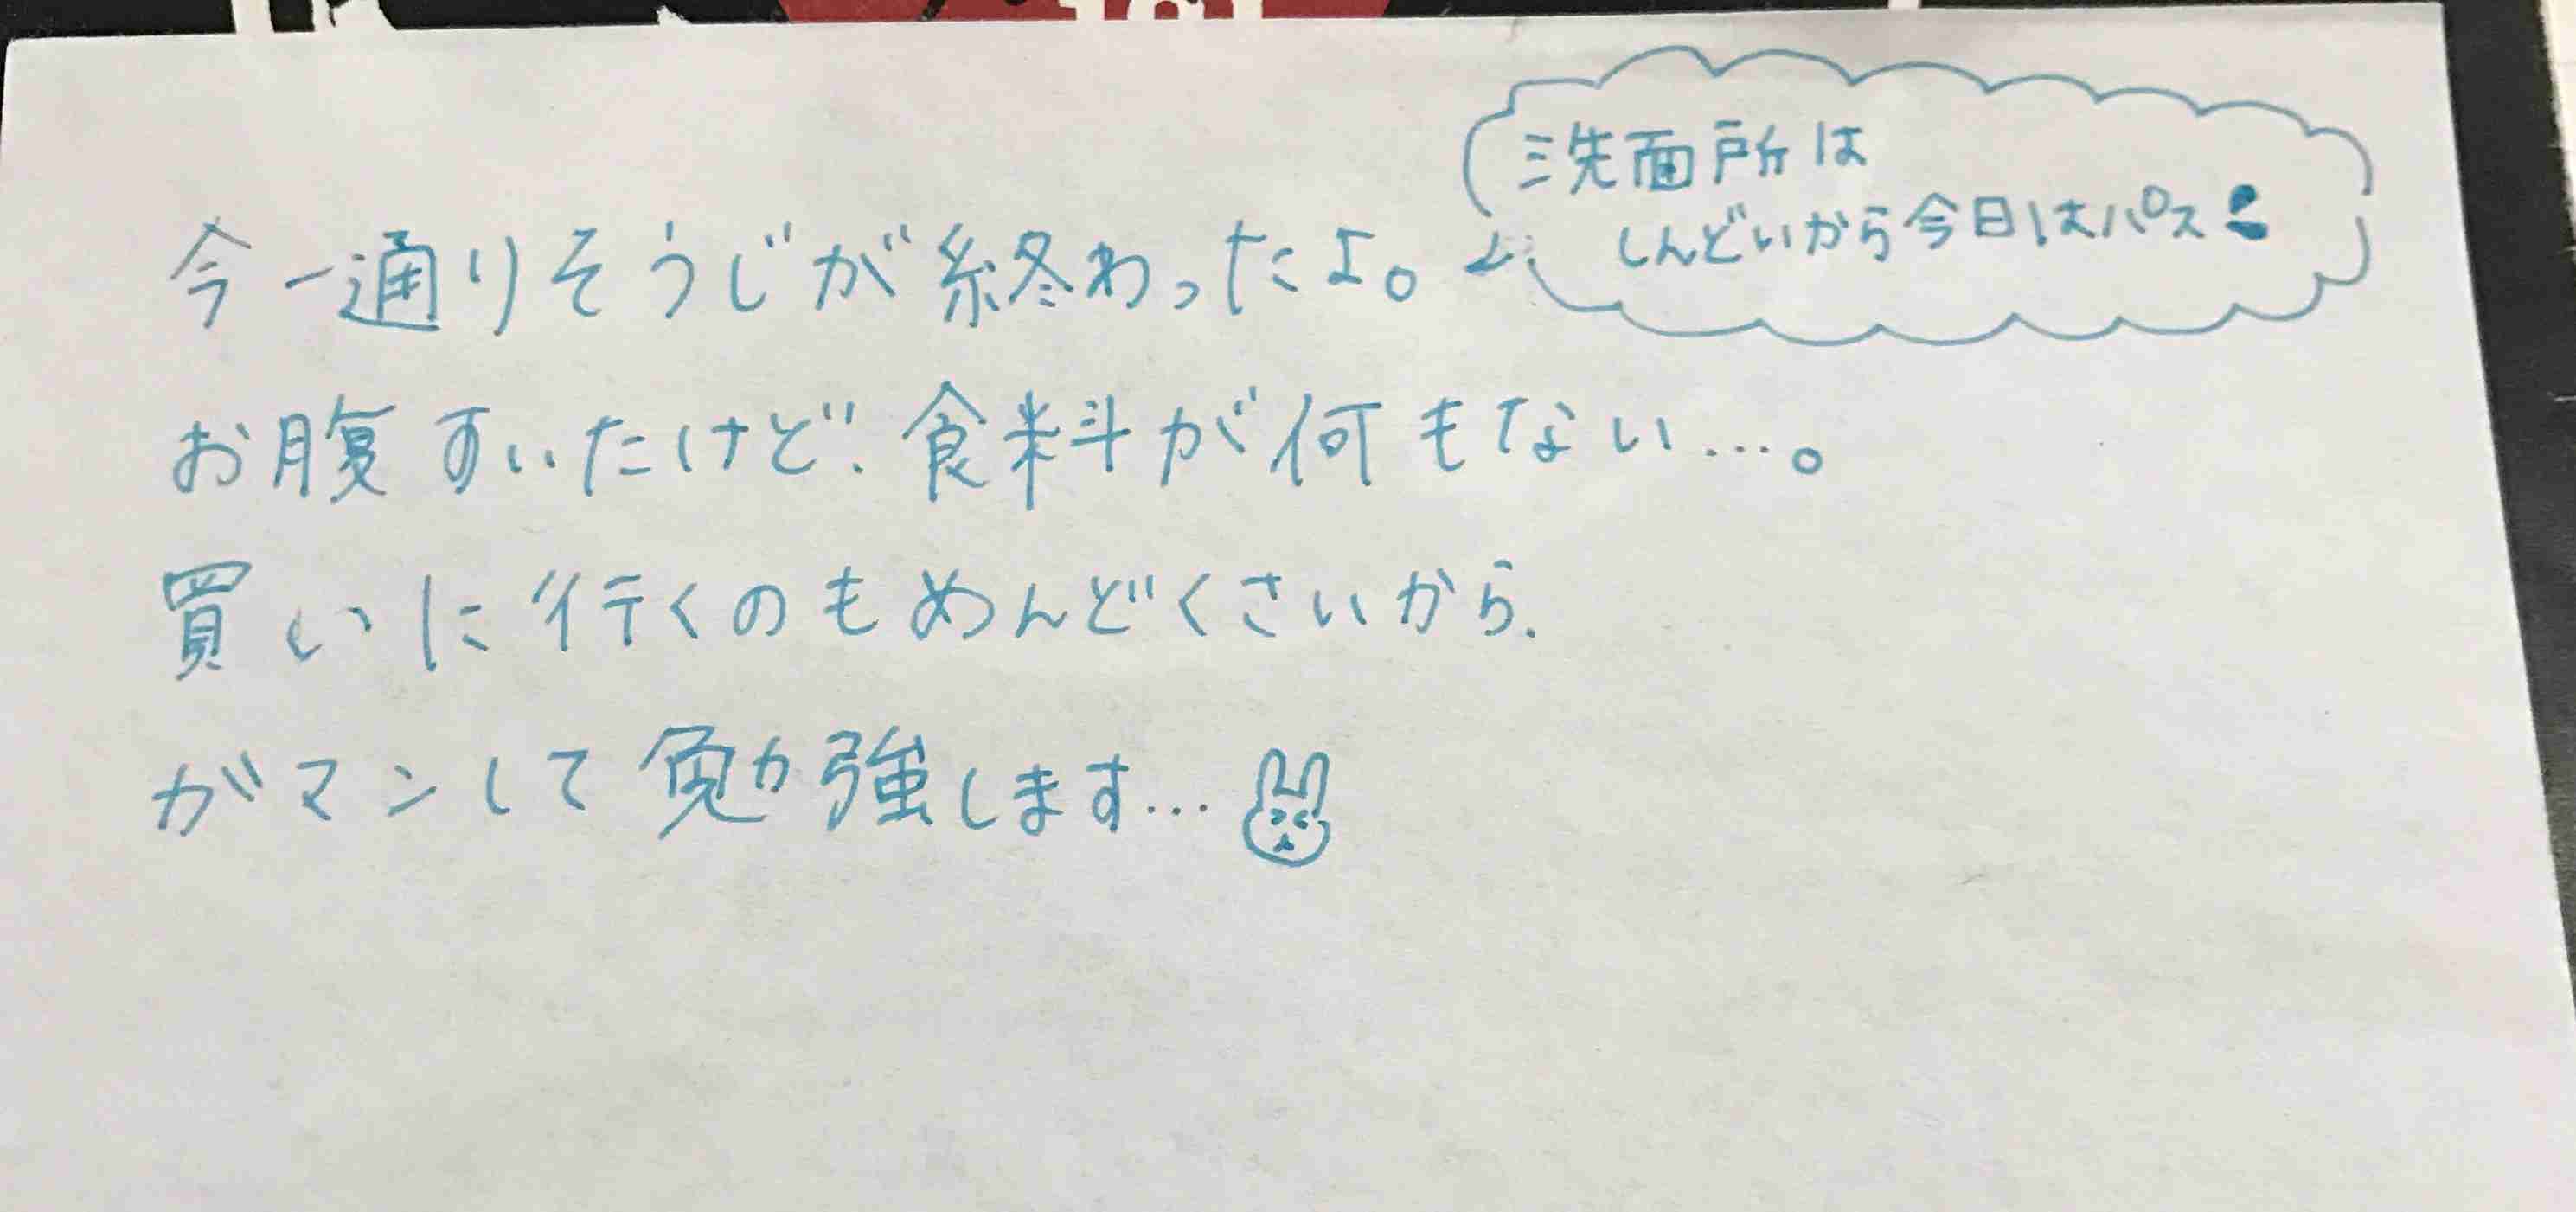 洗面所は
しんどいから今日はパス
今一通りそうじが終わったよ。
お腹すいたけど、食料が何もない…。
買いに行くのもめんどくさいから、
がマンして勉強します…